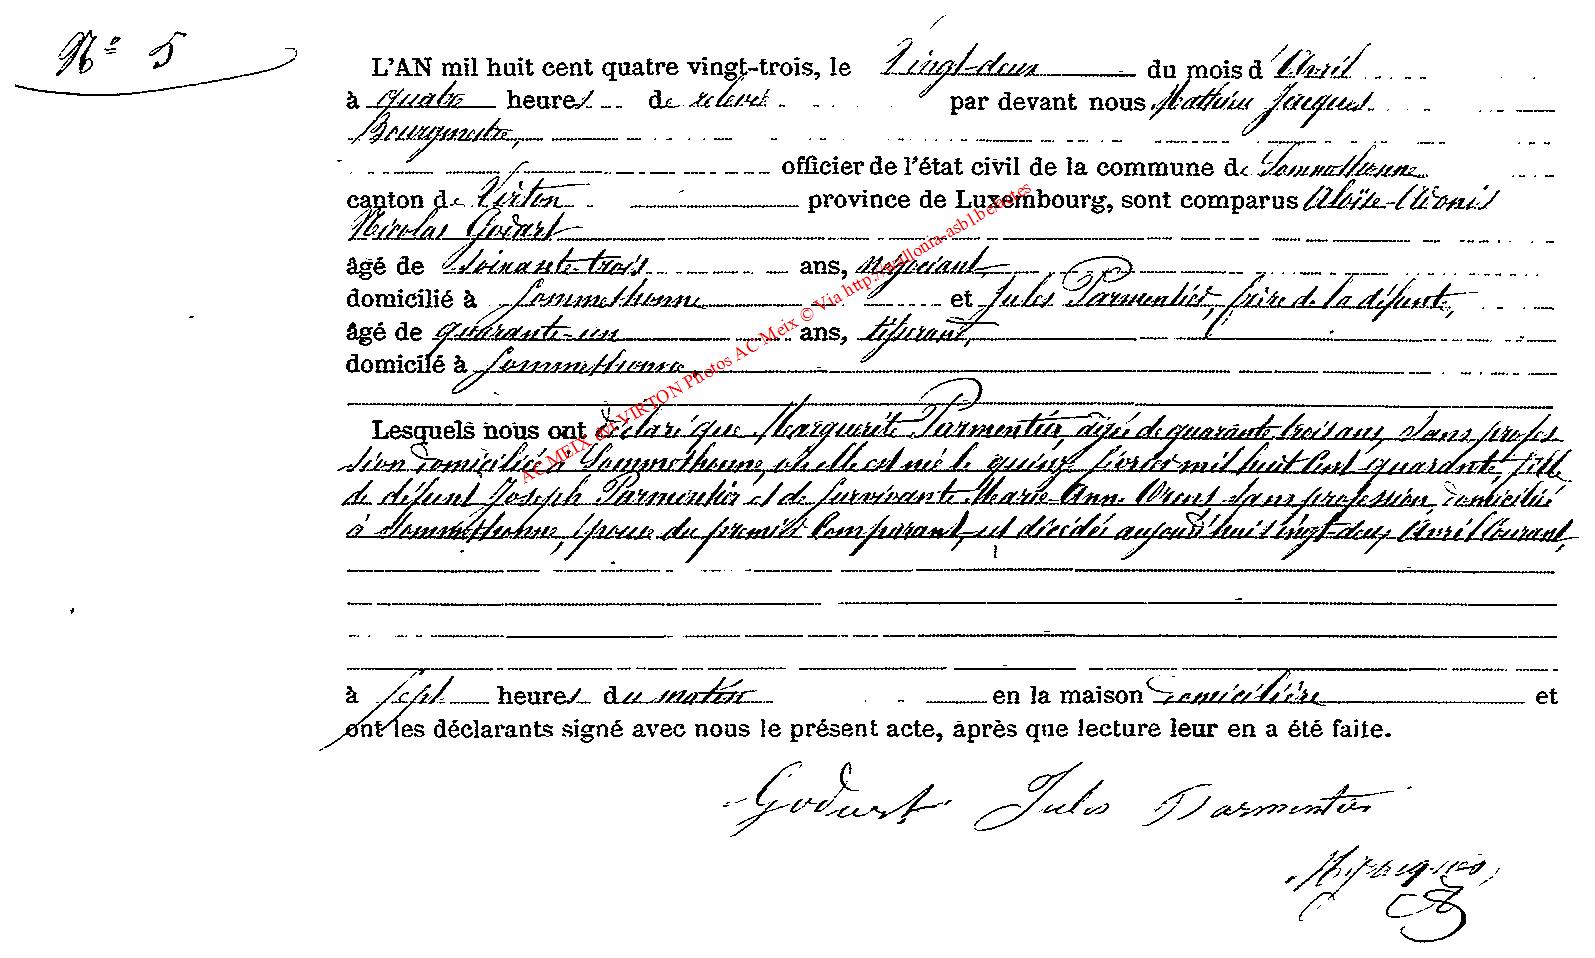 N° 5
L'AN mil huit cent quatre vingt-trois, le Vingt-deux du mois d'Avril
à quatre heures de relevée par devant nous Mathieu Jacques
Bourgmestre,
officier de l'état civil de la commune de Sommethonne
canton de Virton province de Luxembourg, sont comparus Aloïse-Adonis
Nicolas Godart
âgé de soixante-trois ans, négociant
domicilié à Sommethonne et Jules Parmentier, frère de la défunte,
âgé de quarante-un ans, tisserant,
domicilé à Sommethonne,
Lesquels nous ont déclaré que Marguerite Parmentier, agée de quarante trois ans, sans profes
sion domiciliée à Sommethonne, où elle est née le quinze février mil huit cent quarante, fille
de défunt Joseph Parmentier et de survivante Marie-Anne sans profession, domicilié
à Sommethonne, épouse du premier Comparant, est décédée aujourd'hui vingt-deux Avril Courant,
à Sept heures du matin en la maison domicilière et
ont les déclarants signé avec nous le présent acte, après que lecture leur en a été faite.
Godart Jules Parmentier
M. Jacques
AC MEIX dvt VIRTON Photos AC Meix © Via http://wallonia-asbl.be/actes